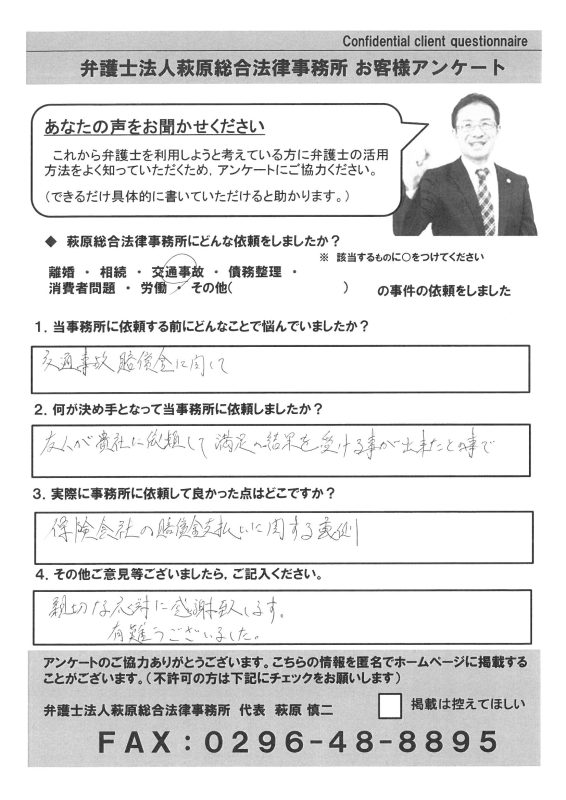 Confidential client questionnaire
弁護士法人萩原総合法律事務所 お客様アンケート
あなたの声をお聞かせください
これから弁護士を利用しようと考えている方に弁護士の活用
方法をよく知っていただくため,アンケートにご協力ください。
(できるだけ具体的に書いていただけると助かります。)
◆ 萩原総合法律事務所にどんな依頼をしましたか?
※ 該当するものに○をつけてください
離婚 ・ 相続 ・ 交通事故 ・ 債務整理 ・
消費者問題 ・ 労働 ・ その他( ) の事件の依頼をしました
1.当事務所に依頼する前にどんなことで悩んでいましたか?
交通事故賠償金に関して
2.何が決め手となって当事務所に依頼しましたか?
友人が貴社に依頼して満足の結果を受ける事が出来たとの事で
3.実際に事務所に依頼して良かった点はどこですか?
保険会社の賠償金支払いに関する
4.その他ご意見等ございましたら,ご記入ください。
親切な応対に感謝致します。
有難うございました。
アンケートのご協力ありがとうございます。こちらの情報を匿名でホームページに掲載する
ことがございます。(不許可の方は下記にチェックをお願いします)
弁護士法人萩原総合法律事務所 代表 萩原 慎二
掲載は控えてほしい
FAX:0296-48-8895